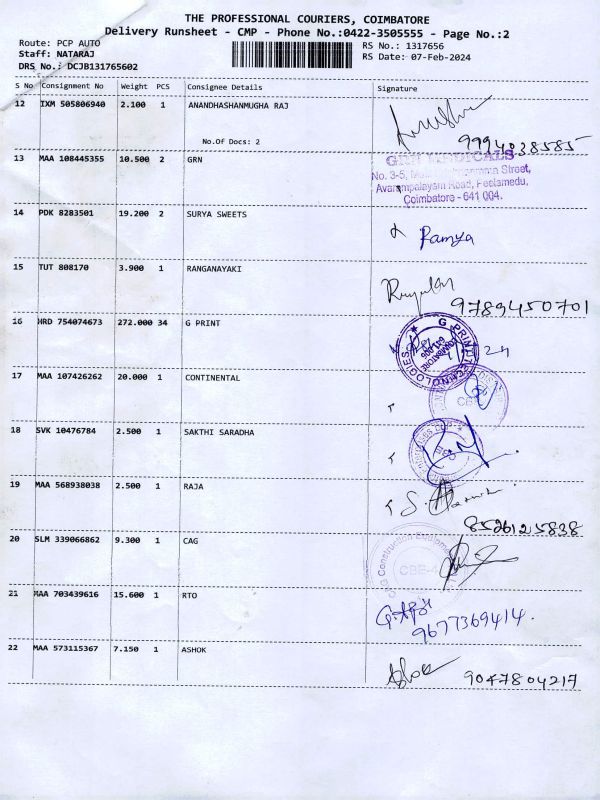 THE PROFESSIONAL COURIERS, COIMBATORE
Delivery Runsheet - CMP - Phone No.:0422-3505555 - Page No.:2
Route: PCP AUTO
RS No.: 1317656
Staff: NATARAJ
RS Date: 07-Feb-2024
DRS No.: DCJB131765602
S No Consignment No Weight PCS Consignee Details Signature
12 IXM 505806940 2.100 1 ANANDHASHANMUGHA RAJ
No.Of Docs: 2
9994038585
13 MAA 108445355 10.500 2 GRN
GRN MEDICALS
No. 3-5, Street,
Avarampalayam Road, Peelamedu,
Coimbatore - 641 004.
14 PDK 8283501 19.200 2 SURYA SWEETS Ramya
15 TUT 808170 3.900 1 RANGANAYAKI
9789450701
16 HRD 754074673 272.000 34 G PRINT
G PRINT TECHNOLOGIES
COIMBATORE
641 006
17 MAA 107426262 20.000 1 CONTINENTAL
CBE
18 SVK 10476784 2.500 1 SAKTHI SARADHA
19 MAA 568938038 2.500 1 RAJA
8526125838
20 SLM 339066862 9.300 1 CAG
CAG Construction
CBE-4
21 MAA 703439616 15.600 1 RTO
9677369414.
22 MAA 573115367 7.150 1 ASHOK Ashok 9047804217